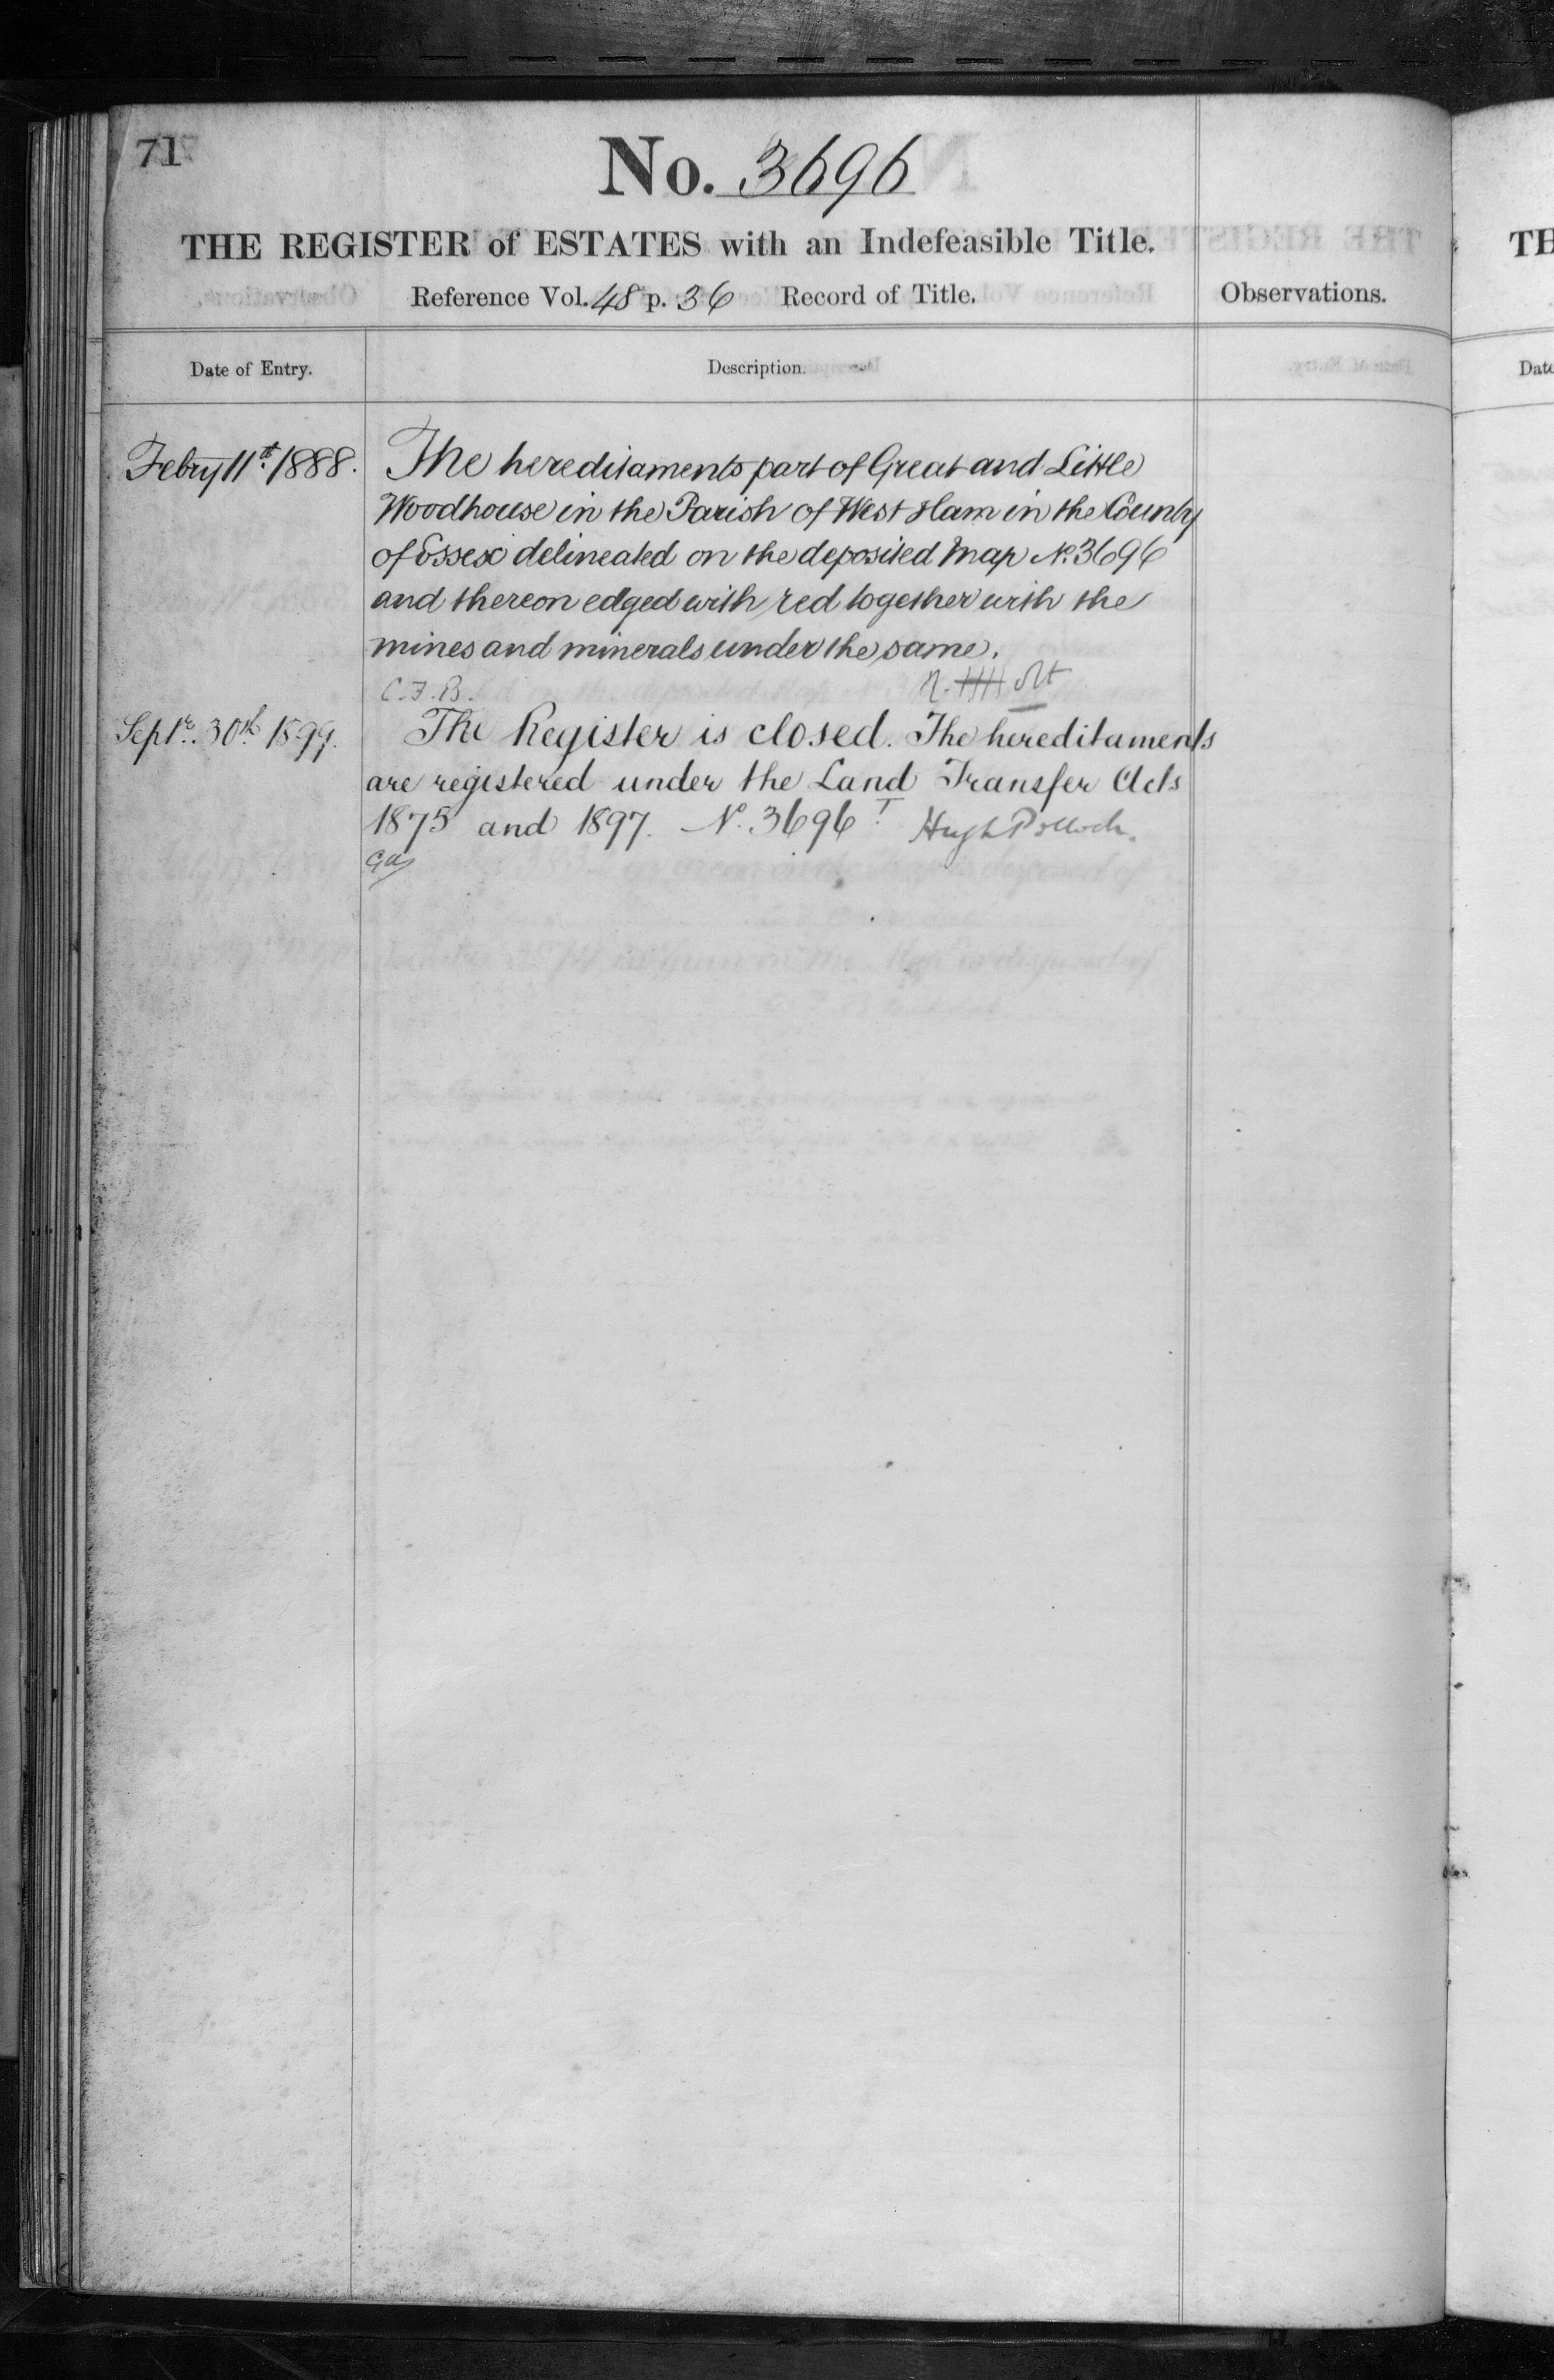 71
No. 3696
THE REGISTER of ESTATES with an Indefeasible Title.
Reference Vol. 48 p. 36 Record of Title.
Observations.
Date of Entry.
Description.
Febry 11th 1888.
The hereditaments part of Great and Little
Woodhouse in the Parish of West Ham in the County
of Essex delineated on the deposited Map No. 3696
and thereon edged with red together with the
mines and minerals under the same.
C.F.B.
Septr. 30th 1899.
The Register is closed. The hereditaments
are registered under the Land Transfer Acts
1875 and 1897. No. 3696 T Hugh Pollock.
TH
Date